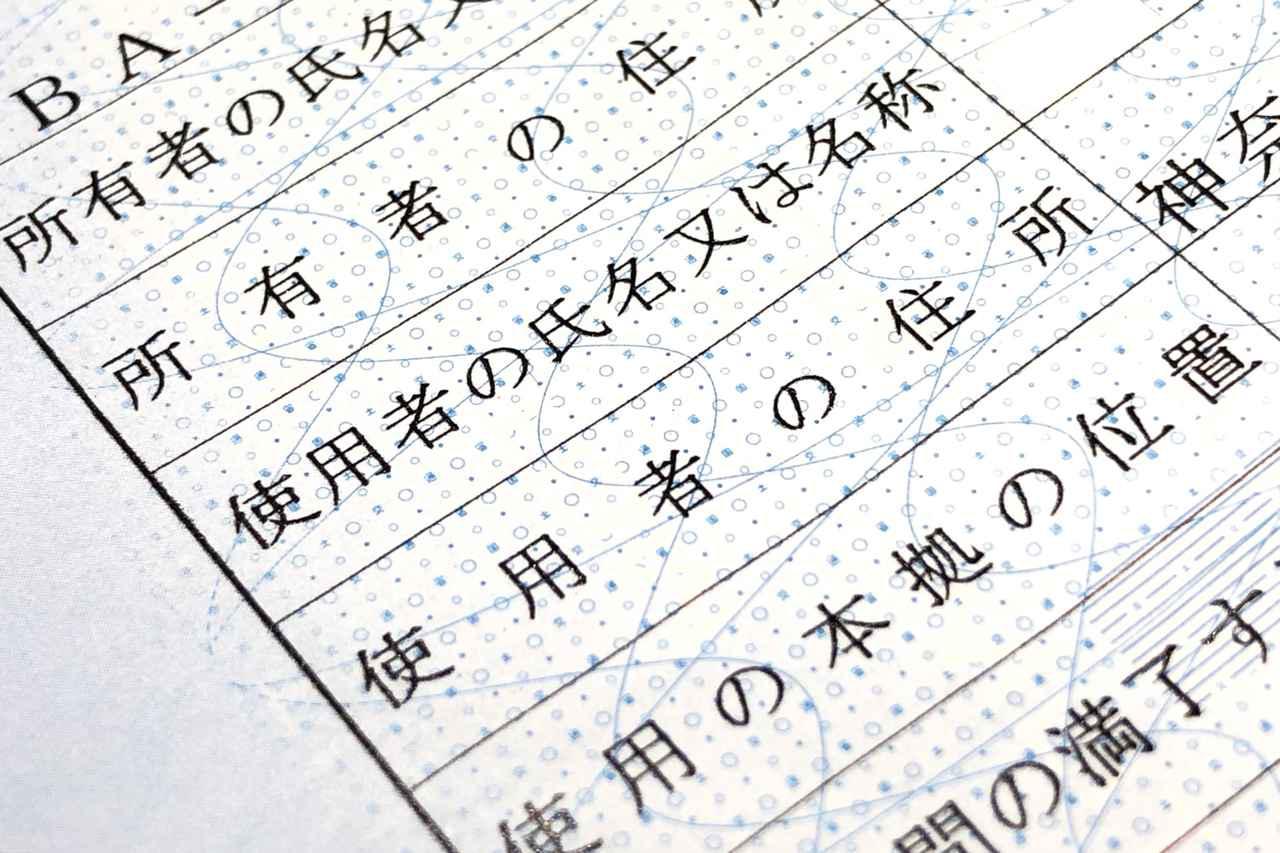 B A
所有者の氏名又
所有者の住
使用者の氏名又は名称
使用者の住所 神奈
使用の本拠の位置
間の満了す